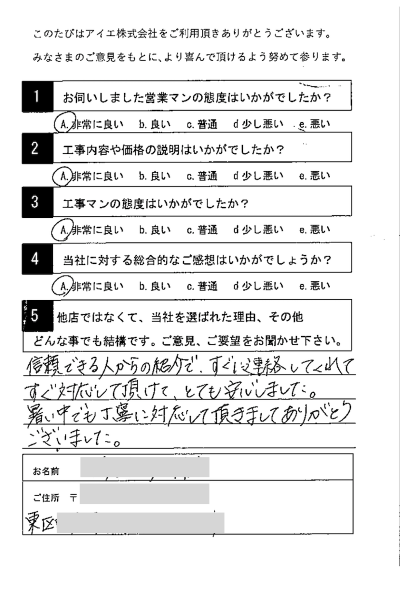 このたびはアイエ株式会社をご利用頂きありがとうございます。
みなさまのご意見をもとに、より喜んで頂けるよう努めて参ります。
1 お伺いしました営業マンの態度はいかがでしたか?
A.非常に良い b.良い c.普通 d 少し悪い e.悪い
2 工事内容や価格の説明はいかがでしたか?
A.非常に良い b.良い c.普通 d 少し悪い e.悪い
3 工事マンの態度はいかがでしたか?
A.非常に良い b.良い c.普通 d 少し悪い e.悪い
4 当社に対する総合的なご感想はいかがでしょうか?
A.非常に良い b.良い c.普通 d 少し悪い e.悪い
5 他店ではなくて、当社を選ばれた理由、その他
どんな事でも結構です。ご意見、ご要望をお聞かせ下さい。
信頼できる人からの紹介で、すぐに連絡してくれて
すぐ対応して頂けて、とても安心しました。
暑い中でも丁寧に対応して頂きましてありがとう
ございました。
お名前
ご住所 〒
東区